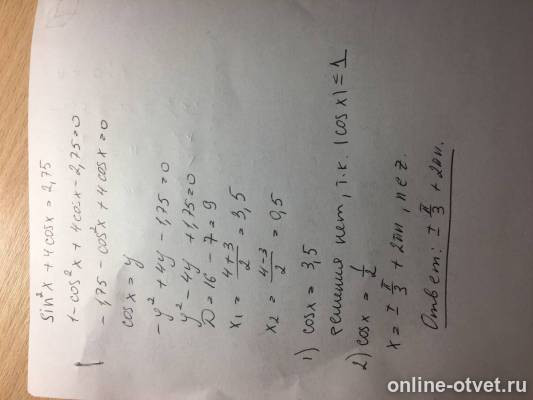 sin²x + 4cosx = 2,75
1 - cos²x + 4cosx - 2,75 = 0
- 1,75 - cos²x + 4cosx = 0
cosx = y
- y² + 4y - 1,75 = 0
y² - 4y + 1,75 = 0
D = 16 - 7 = 9
x₁ = (4+3)/2 = 3,5
x₂ = (4-3)/2 = 0,5
1) cosx = 3,5
решения нет, т.к. |cosx| ≤ 1
2) cosx = 1/2
x = ± π/3 + 2πn, n ∈ z.
Ответ: ± π/3 + 2πn.
online-otvet.ru